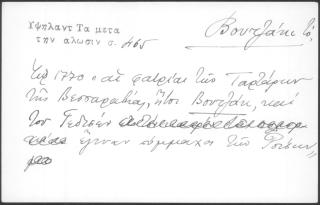 Υψηλαντ Τα μετα
την αλωσιν σ. 465
Βουτζάκι τό,
Τῷ 1770 "αἱ φατρίαι τῶν Ταρτάρων
τῆς Βεσσαραβίας, ἤτοι Βουτζάκ, καί
τοῦ Γεδισάν
ἔγιναν σύμμαχοι τῶν Ρώσων"